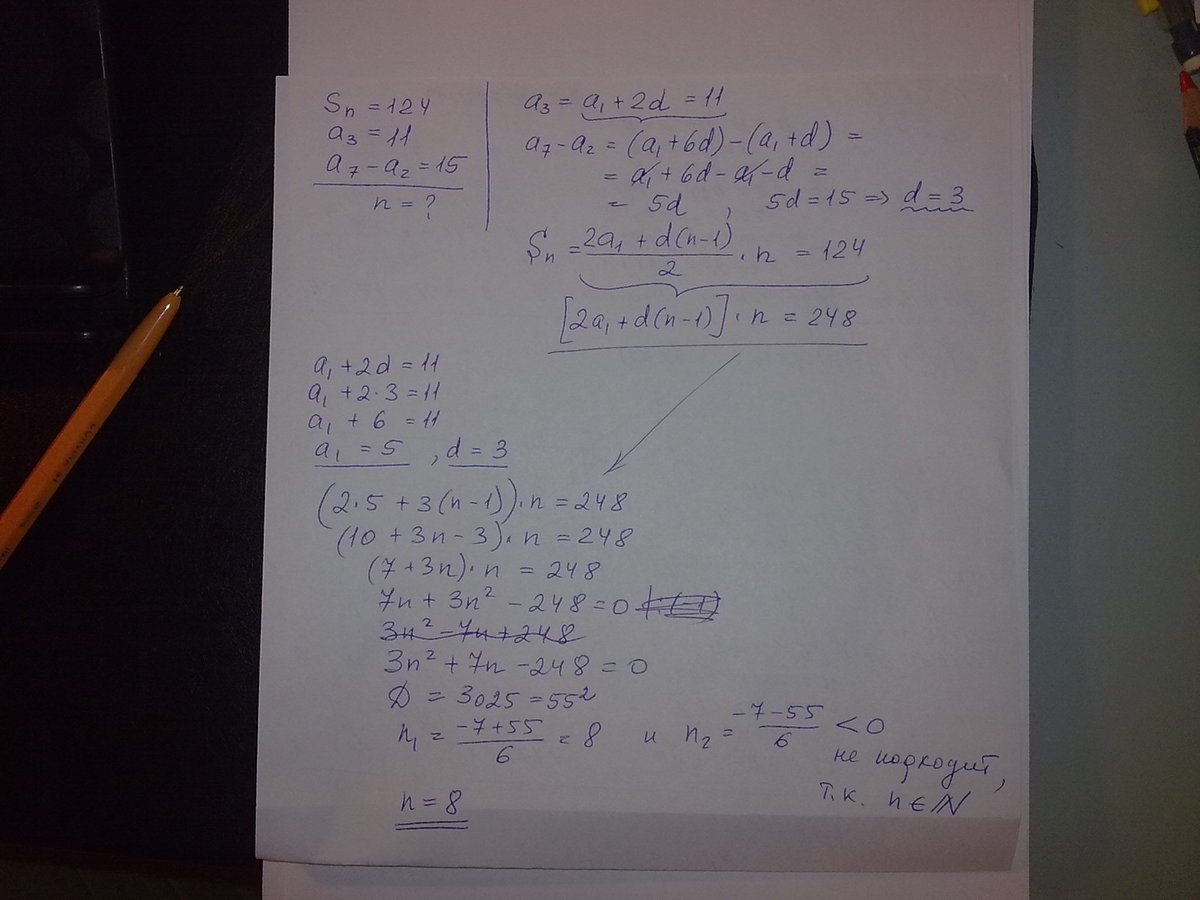 Sₙ = 124
a₃ = 11
a₇ - a₂ = 15
n = ?
a₃ = a₁ + 2d = 11
a₇ - a₂ = (a₁ + 6d) - (a₁ + d) =
= a₁ + 6d - a₁ - d =
= 5d , 5d = 15 => d = 3
Sₙ = (2a₁ + d(n-1))/2 · n = 124
[2a₁ + d(n-1)] · n = 248
a₁ + 2d = 11
a₁ + 2·3 = 11
a₁ + 6 = 11
a₁ = 5 , d = 3
(2·5 + 3(n-1))·n = 248
(10 + 3n - 3)·n = 248
(7 + 3n)·n = 248
7n + 3n² - 248 = 0
3n² - 7n + 248
3n² + 7n - 248 = 0
D = 3025 = 55²
n₁ = (-7+55)/6 = 8 и n₂ = (-7-55)/6 < 0
не подходит,
т.к. n ∈ N
n = 8